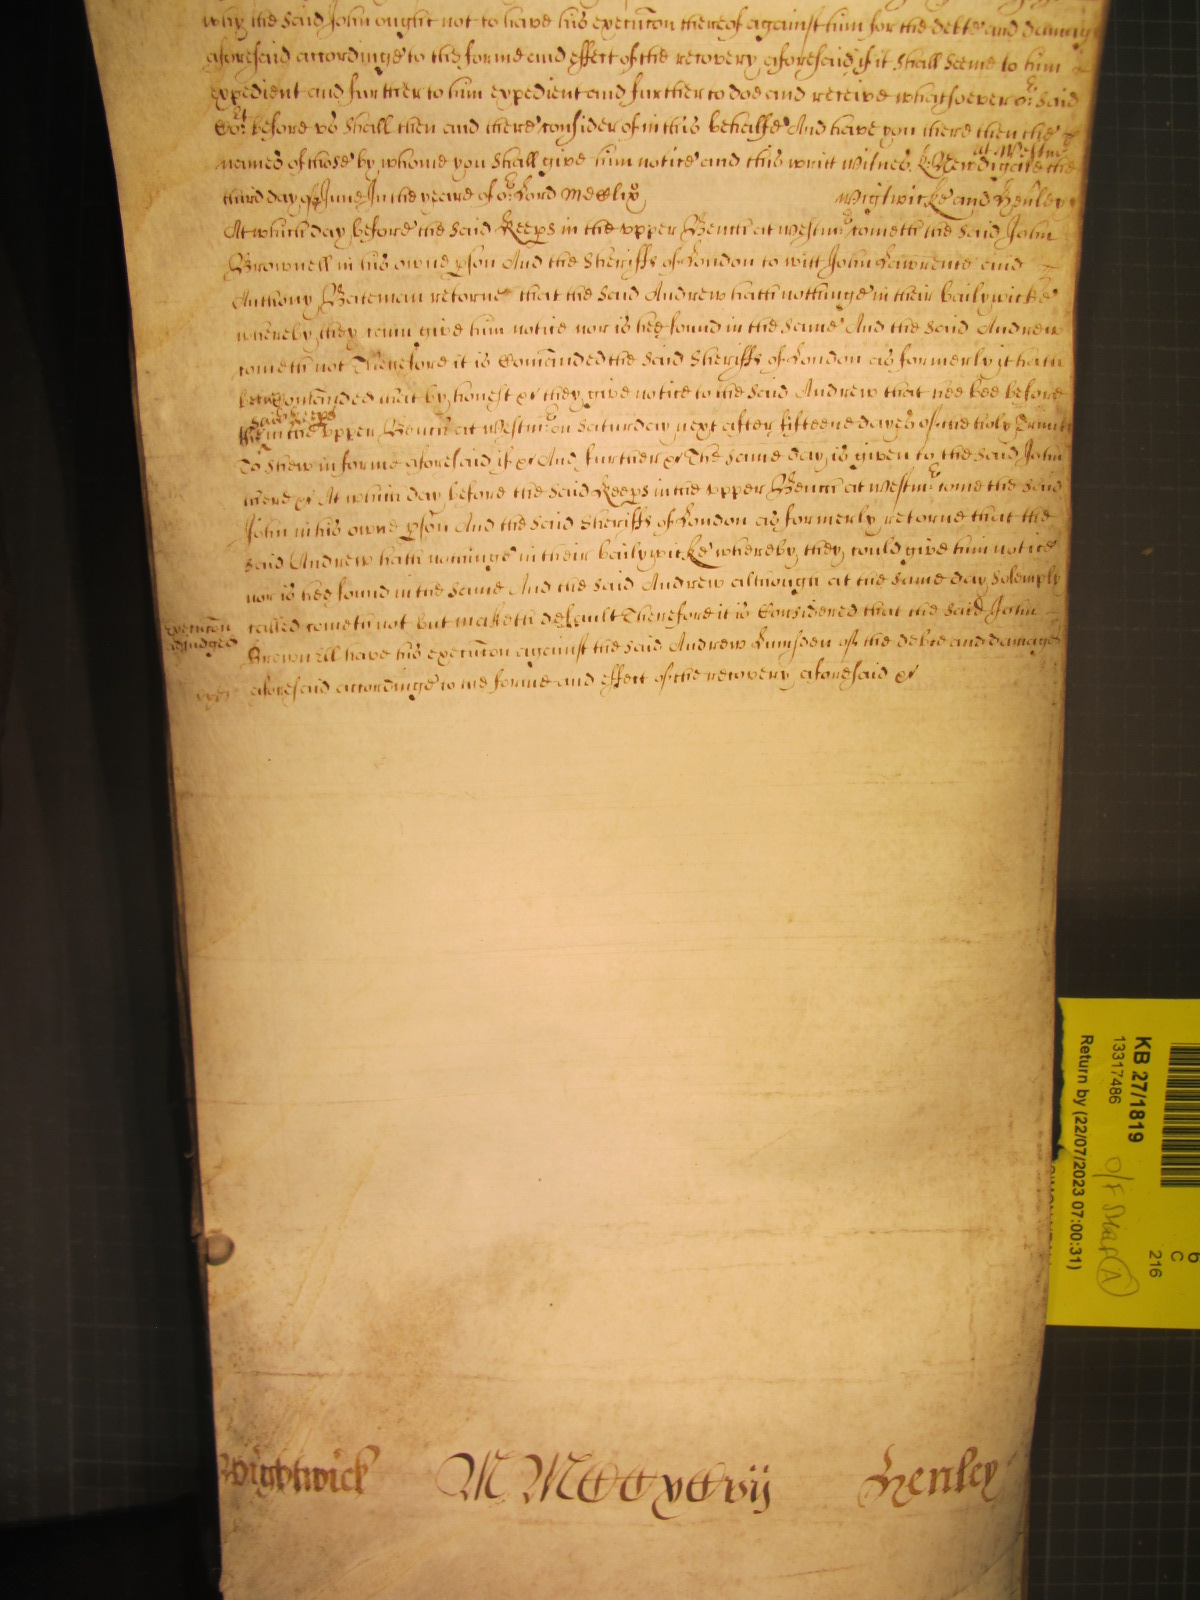 why the said John ought not to have his execucon thereof against him for the debte and damag
aforesaid accordinge to the forme and effect of the recovery aforesaid if it shall seeme to him
expedient and further to him expedient and further to doe and receive whatsoever or said
Cort before vs shall then and there consider of in this behalfe And have you there then the
names of those by whome you shall give him notice and this writt Witnes R: Newdigate at Westmr the
third day of June In the yeare of or Lord MDClix Wightwicke and Henley
At which day before the said Keeps in the vpper Bench at Westmr cometh the said John
Brownell in his owne pson And the Sheriffs of London to witt John Lawrence and
Anthony Bateman retorne that the said Andrew hath nothinge in their bailywicke
whereby they cann give him notice nor is hee found in the same And the said Andrew
cometh not Therefore it is Comanded the said Sheriffs of London as formerly it hath
been Comanded that by honest &c they give notice to the said Andrew that hee bee before
the said Keeps in the vpper Bench at Westmr on Saturday next after fifteene dayes of the holy Trinity
To shew in forme aforesaid if &c And further &c The same day is given to the said John
there &c At which day before the said Keeps in the vpper Bench at Westmr come the said
John in his owne pson And the said Sheriffs of London as formerly retorne that the
said Andrew hath nothinge in their bailywicke whereby they could give him notice
nor is hee found in the same And the said Andrew although at the same day solemply
called cometh not but maketh default Therefore it is Considered that the said John
Execucon
adiudged
Brownell have his execucon against the said Andrew Lumsden of the debte and damage
aforesaid accordinge to the forme and effect of the recovery aforesaid &c
Wightwick MMCCxCvij Henley
KB 27/1819
13317486
Return by (22/07/2023 07:00:31)
O/F Star A
6
C
216